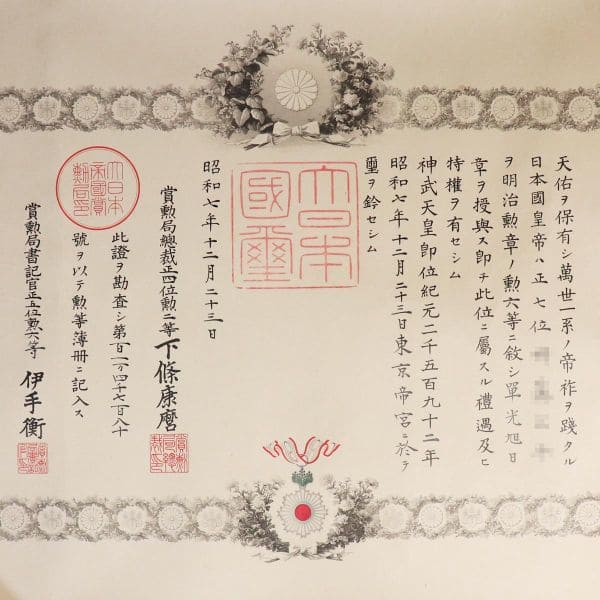 天佑ヲ保有シ萬世一系ノ帝祚ヲ踐タル
日本國皇帝ハ正七位
ヲ明治勲章ノ勲六等ニ敘シ單光旭日
章ヲ授與ス即チ此位ニ屬スル禮遇及ヒ
特權ヲ有セシム
神武天皇即位紀元二千五百九十二年
昭和七年十二月二十三日東京帝宮ニ於テ
璽ヲ鈐セシム
大日本國璽
昭和七年十二月二十三日
賞勲局總裁正四位勲二等下條康麿
大日本帝國賞勲局印
此證ヲ勘査シ第百二万四千七百八十
號ヲ以テ勲等簿册ニ記入ス
賞勲局書記官正五位勲六等 伊手衡